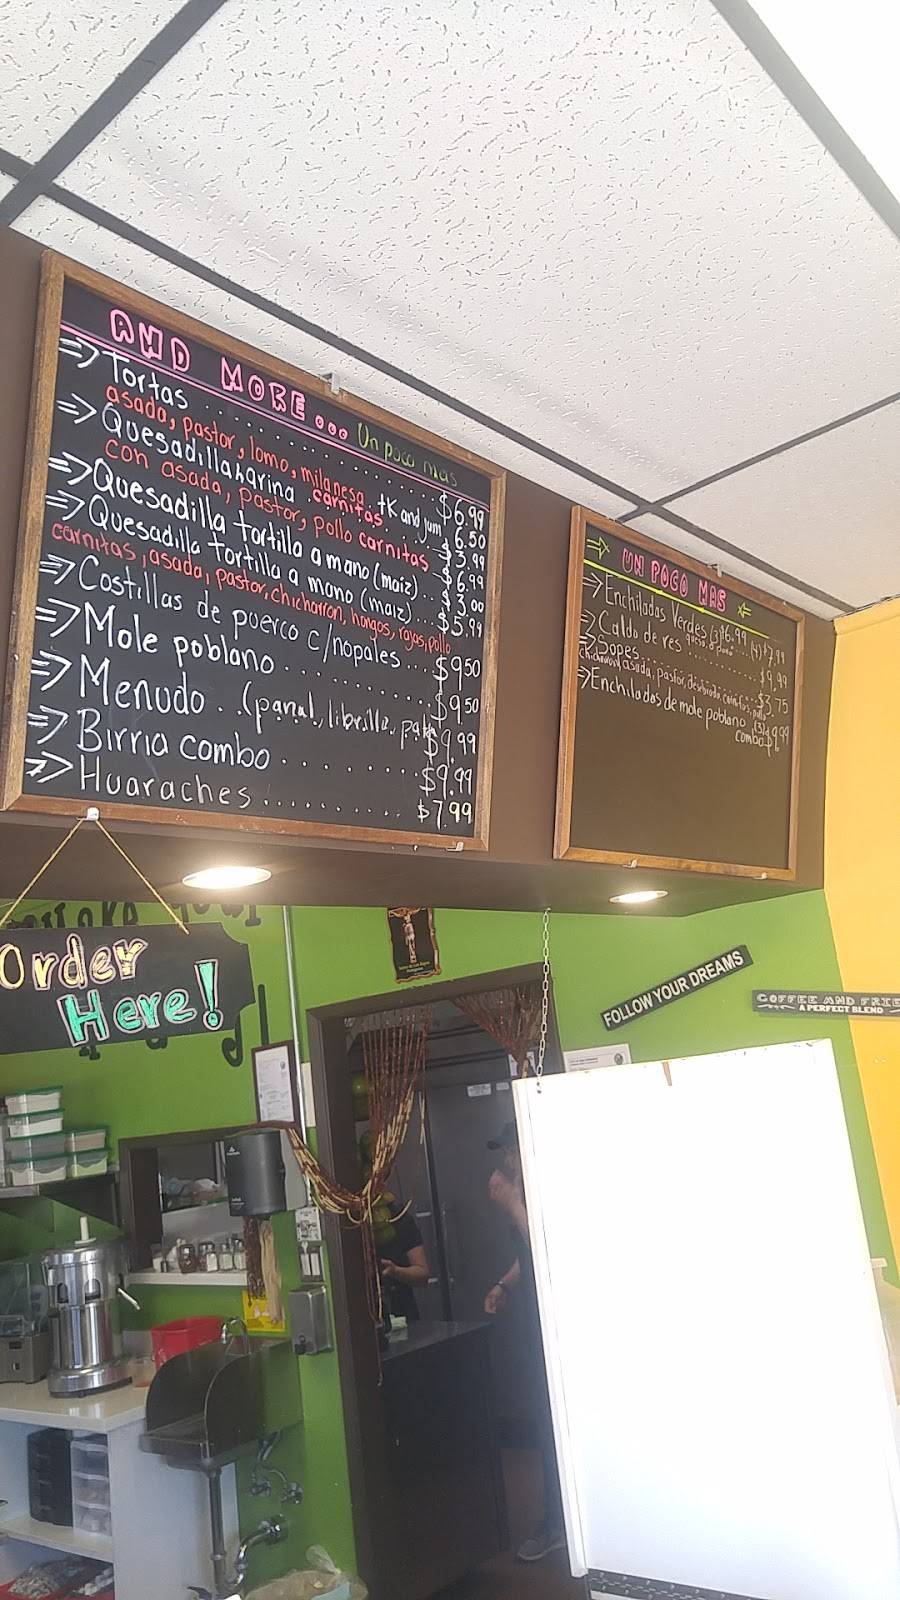 AND MORE... Un poco mas
=> Tortas ........ $6.99
asada, pastor, lomo, milanesa, carnitas
=> Quesadilla harina
con asada, pastor, pollo carnitas
=> Quesadilla tortilla a mano (maiz)..
=> Quesadilla tortilla a mano (maiz)... $5.99
carnitas, asada, pastor, chicharron, hongos, rajas, pollo
=> Costillas de puerco c/nopales ... $9.50
=> Mole poblano ........ $9.50
=> Menudo .. (panal, librillo, pata $9.99
=> Birria combo ........ $9.99
=> Huaraches ........ $7.99
UN POCO MAS
=> Enchiladas Verdes (3) $6.99 ... (4) $7.99
=> Caldo de res ........ $9.99
=> Sopes ........ $3.75
=> Enchiladas de mole poblano (3) $9.99
combo
Order
Here!
FOLLOW YOUR DREAMS
COFFEE AND FRIE
A PERFECT BLEND